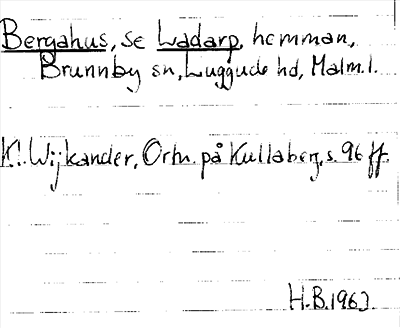 Bergahus, se Ladarp, hemman,
Brunnby sn, Luggude hd, Malm.l.
K. Wijkander, Ortn. på Kullaberg, s. 96 ff.
H.B. 1963.